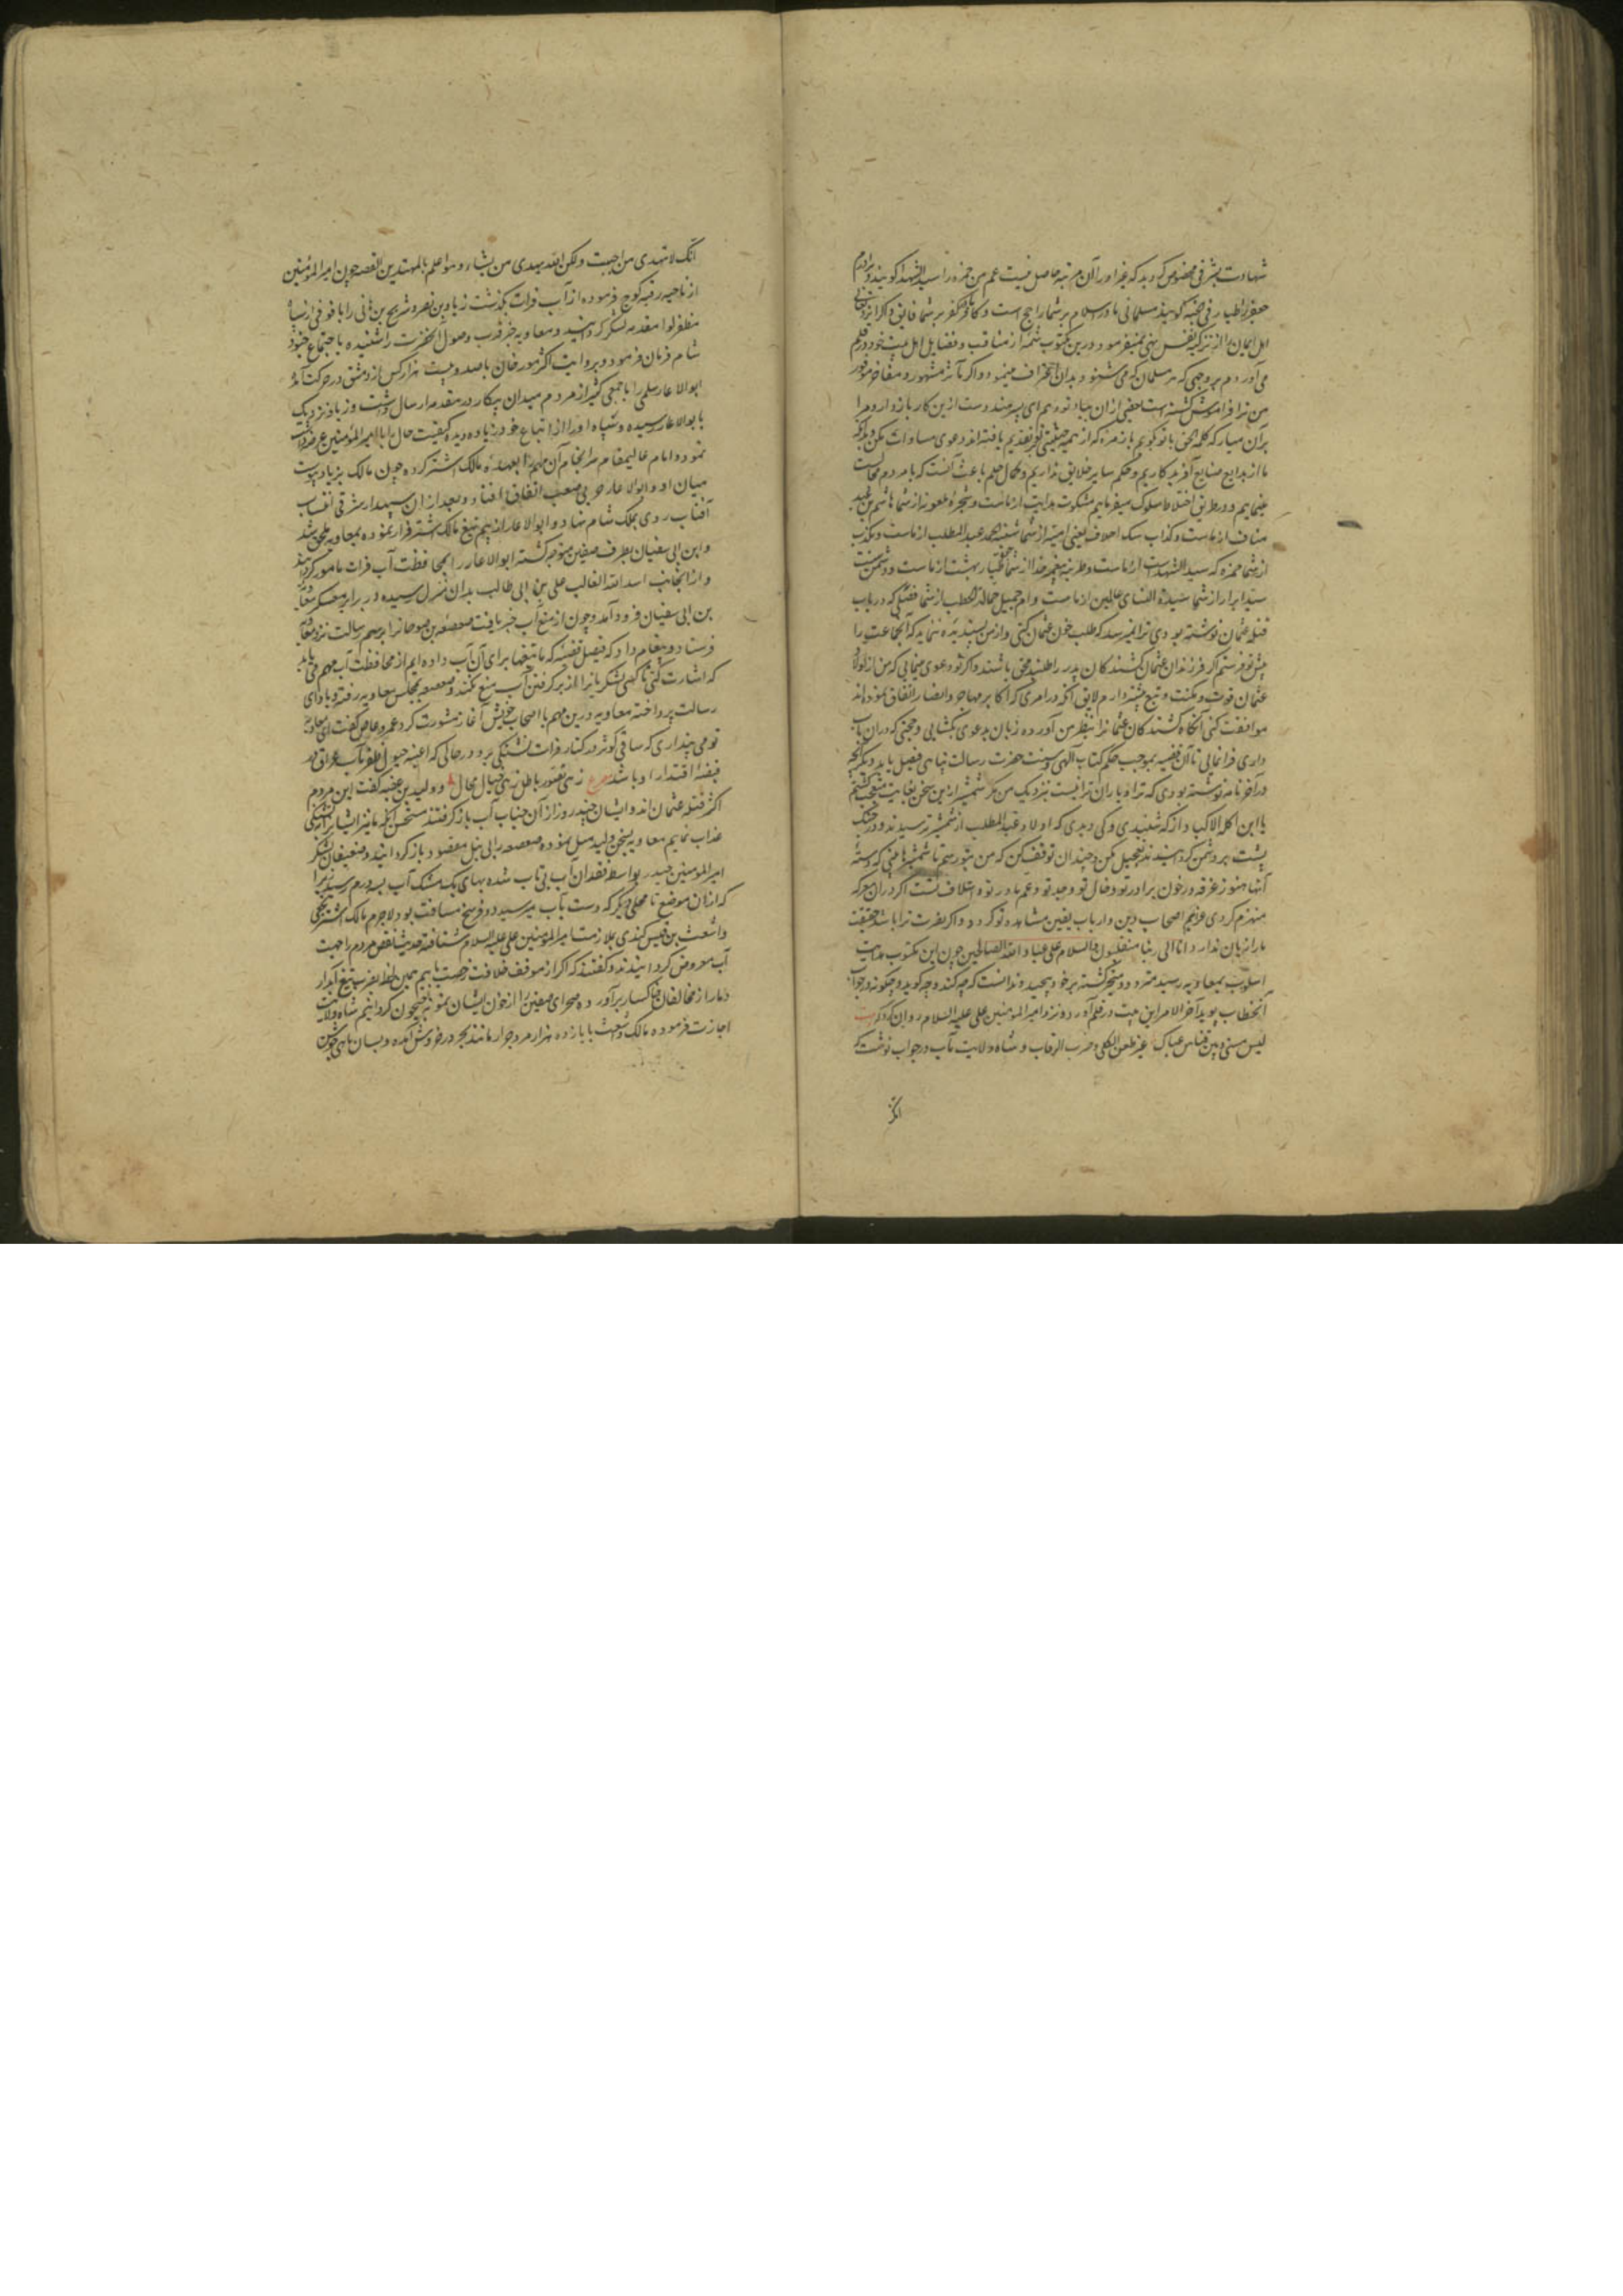 شهادت بشرفی مخصوص گردید که غیر او را آن مرتبه حاصل نیست عم من حمزه را سید الشهدا گویند و برادرم
جعفر را طیار فی الجنه گویند مسلمانی ما در اسلام بر شما راجح است و کافر بر شما فایق و اگر ایزد تعالی
اهل ایمان را از تزکیه نفس نهی نمیفرمود درین مکتوب شمه از مناقب و فضایل اهل بیت خود در قلم
می آوردم بر وجهی که هر مسلمان که می شنود بدان اعتراف مینمود و اگر مآثر مشهور و مفاخر موفور
من ترا فراموش گشته است بعضی از آن بیاد تو دهم ای پسر هند دست ازین کار باز دار و مرا
بر آن میار که کلمه الحق با تو گویم
ما از بدایع صنایع آفریدگاریم و حکم سایر خلایق نداریم و کمال حلم باعث آنست که با مردم مجالست
مینماییم و در طریق اختلاط سلوک میفرماییم مشکوت هدایت از ماست و شجره ملعونه از شما هاشم بن عبد
مناف از ماست و کذاب سک احلاف یعنی امیه از شما شیبة الحمد عبد المطلب از ماست و مکذب
از شما حمزه که سید الشهداست از ماست و طرید پیغمبر خدا از شما طیار بهشت از ماست و دشمن سنت
سید ابرار از شما سیدة النساء عالمین از ماست و ام جمیل حمالة الحطب از شما فصلی که در باب
قتله عثمان نوشته بودی ترا نمیرسد که طلب خون عثمان کنی و از من پسندیده ننماید که آن جماعت را
پیش تو فرستم اگر فرزندان عثمان کشندگان پدر را طلبند محق باشند و اگر تو دعوی مینمایی که من از اولاد
عثمان قوت و مکنت و تبع بیشتر دارم لایق آنکه در امری که اکابر مهاجر و انصار اتفاق نموده اند
موافقت کنی آنگاه کشندگان عثمانرا بنظر من آورده زبان بدعوی بگشایی و حجتی که در آن باب
داری فرا نمایی تا آن قضیه بموجب حکم کتاب الهی و سنت حضرت رسالت پناهی فیصل یابد دیگر آنچه
در آخر نامه نوشته بودی که ترا و یاران ترا نیست نزدیک من مگر شمشیر ازین سخن بغایت متعجب گشتم
یا ابن آکلة الاکباد از که شنیدی و کی دیدی که اولاد عبد المطلب از شمشیر ترسیدند و در جنگ
پشت بر دشمن گردانیدند تعجیل مکن و چندان توقف کن که من بتو رسم با شمشیرهایی که دسته
آنها هنوز غرقه در خون برادر تو و خال تو و جد تو و عم مادر تو و اسلاف تست اگر در آن معرکه
منهزم گردی عزیم اصحاب دین و ارباب یقین مشاهده تو گردد و اگر نصرت ترا باشد حقیقت
ما را زیان ندارد انا الی ربنا منقلبون والسلام علی عباد الله الصالحین چون این مکتوب هدایت
اسلوب بمعاویه رسید متردد و متحیر گشته بر خود پیچید و ندانست که چه کند و چه گوید و چگونه جواب
آن خطاب پوید آخر الامر این بیت در قلم آورد و نزد امیر المؤمنین علی علیه السلام روان کرد که بیت
لیس بینی و بین قیس عتاب غیر طعن الکلی و ضرب الرقاب و شاه ولایت مآب در جواب نوشت که
انک
انک لا تهدی من احببت ولکن الله یهدی من یشاء و هو اعلم بالمهتدین القصه چون امیر المؤمنین
از ناحیه رقه کوچ فرموده از آب فرات بگذشت زیاد بن نضر و شریح بن هانی را با فوجی از سپاه
مظفر لوا مقدمه لشکر گردانید و معاویه خبر قرب وصول آنحضرت را شنیده باجتماع جنود
شام فرمان فرمود و بروایت اکثر مورخان با صد و بیست هزار کس از دمشق در حرکت آمد
ابو الاعور سلمی را با جمعی کثیر از مردم میدان پیکار در مقدمه ارسال داشت و زیاد نزدیک
بابو الاعور رسیده و سپاه او را از اتباع خود زیاده دیده کیفیت حال را با امیر المؤمنین عرضه داشت
نمود و امام عالیمقام سرانجام آن مهم را بعهده مالک اشتر کرده چون مالک بزیاد پیوست
میان او و ابو الاعور حربی صعب اتفاق افتاد و بعد از آن سپهدار مشرقی انتساب
آفتاب روی بملک شام نهاد و ابو الاعور از بیم تیغ مالک اشتر فرار نموده بمعاویه ملحق شد
و ابن ابی سفیان بطرف صفین متوجه گشته ابو الاعور را بمحافظت آب فرات مامور گردانید
و از آنجانب اسد الله الغالب علی بن ابی طالب بدان منزل رسیده در برابر معسکر معاویه
بن ابی سفیان فرود آمد و چون از منع آب خبر یافت صعصعه بن صوحانرا برسم رسالت نزد معاویه
فرستاد و پیغام داد که فیصل قضیه که ما تیغها برای آن آب داده ایم از محافظت آب مهم تر باید
که اشارت کنی تا کسی لشکریانرا از برگرفتن آب منع نکند و صعصعه بمجلس معاویه رفته و بادای
رسالت پرداخته معاویه درین مهم با اصحاب خویش آغاز مشورت کرد عمرو عاص گفت ای معاویه
تو می پنداری که ساقی کوثر در کنار فرات تشنگی برد در حالی که اعنه خیول ظفر مآب عراق در
قبضه اقتدار او باشد مصرع زهی تصور باطل زهی خیال محال و ولید بن عقبه گفت این مردم
اکثر قتله عثمان اند و ایشان چند روز از آن جناب آب باز گرفتند مستحسن آنکه ما نیز ایشانرا بتشنگی
عذاب نماییم معاویه بسخن ولید میل نموده صعصعه را بی نیل مقصود باز گردانید و ضعیفان لشکر
امیر المومنین حیدر بواسطه فقدان آب بی تاب شده بهای یک مشک آب بسه درم رسید زیرا
که از آن موضع تا محلی دیگر که دست بآب میرسید دو فرسخ مسافت بود لاجرم مالک اشتر نخعی
و اشعث بن قیس کندی بملازمت امیر المومنین علی علیه السلام شتافته حدیث تعطش مردم را جهت
آب معروض گردانیدند و گفتند که اگر از موقف خلافت رخصت یابیم همین لحظه بضرب تیغ آبدار
دمار از مخالفان خاکسار برآورده صحرای صفین را از خون ایشان نمونه جیحون گردانیم شاه ولایت
اجازت فرموده مالک و اشعث با یازده هزار مرد جرار مانند بحر در خروش آمده و بسان ماهی جوشن